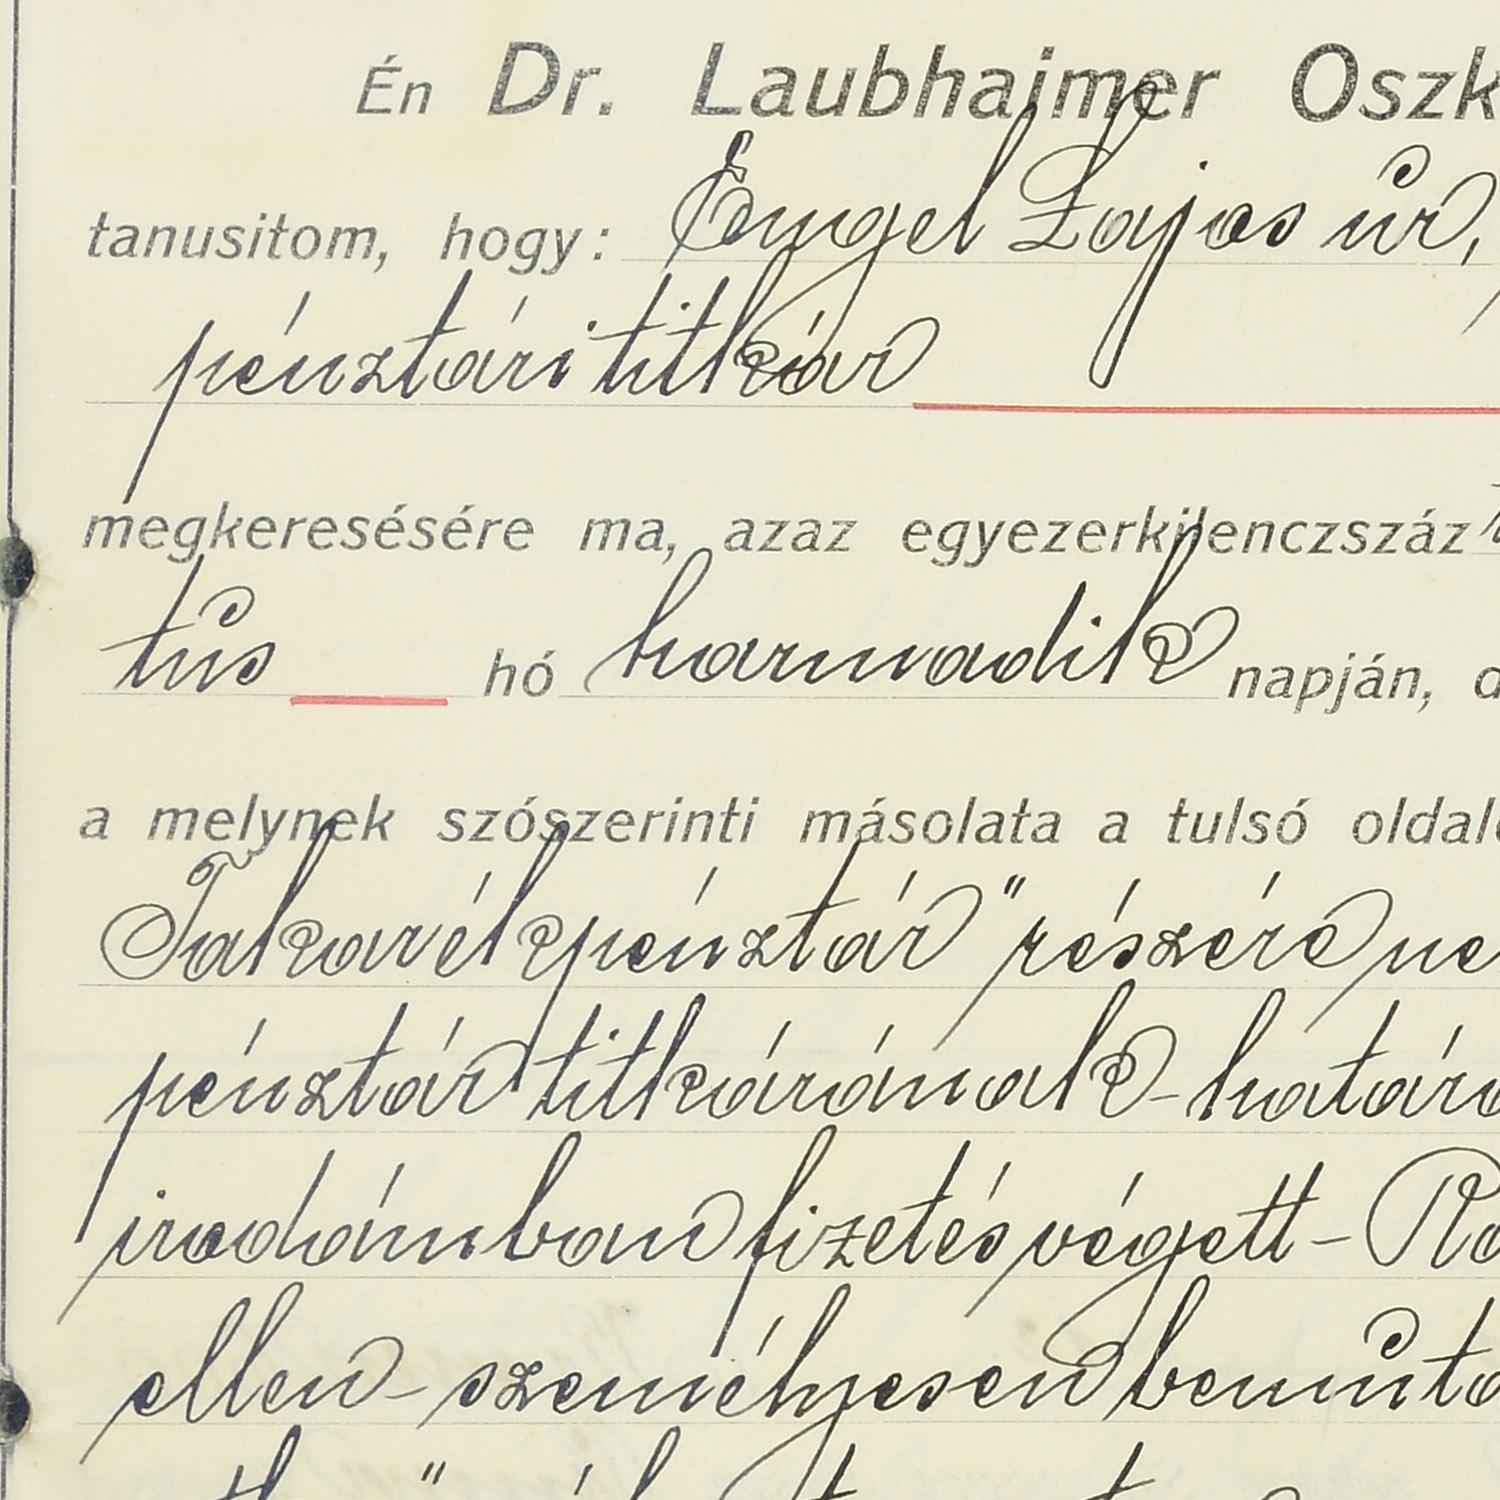 Én Dr. Laubhaimer Oszk
tanusitom, hogy: Engel Lajos úr,
pénztári titkár
megkeresésére ma, azaz egyezerkilenczszáz
tus hó harmadik napján, d
a melynek szószerinti másolata a tulsó oldalo
Takarékpénztár" részére ne
pénztár titkárának - határo
irodámban fizetés végett - Ro
ellen - személyesen bemuta